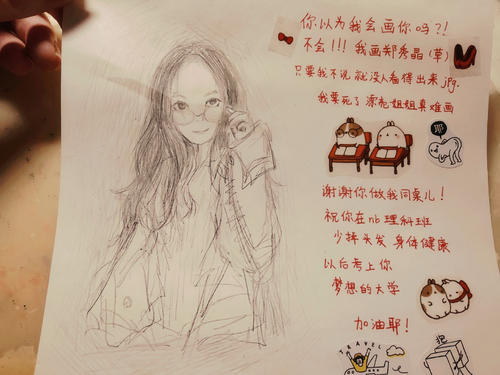 你以为我会画你吗?!
不会!!! 我画郑秀晶(草)
只要我不说就没人看得出来jpg.
我要死了漂亮姐姐真难画
耶
谢谢你做我同桌儿!
祝你在nb理科班
少掉头发 身体健康
以后考上你
梦想的大学
加油耶!
TRAVEL